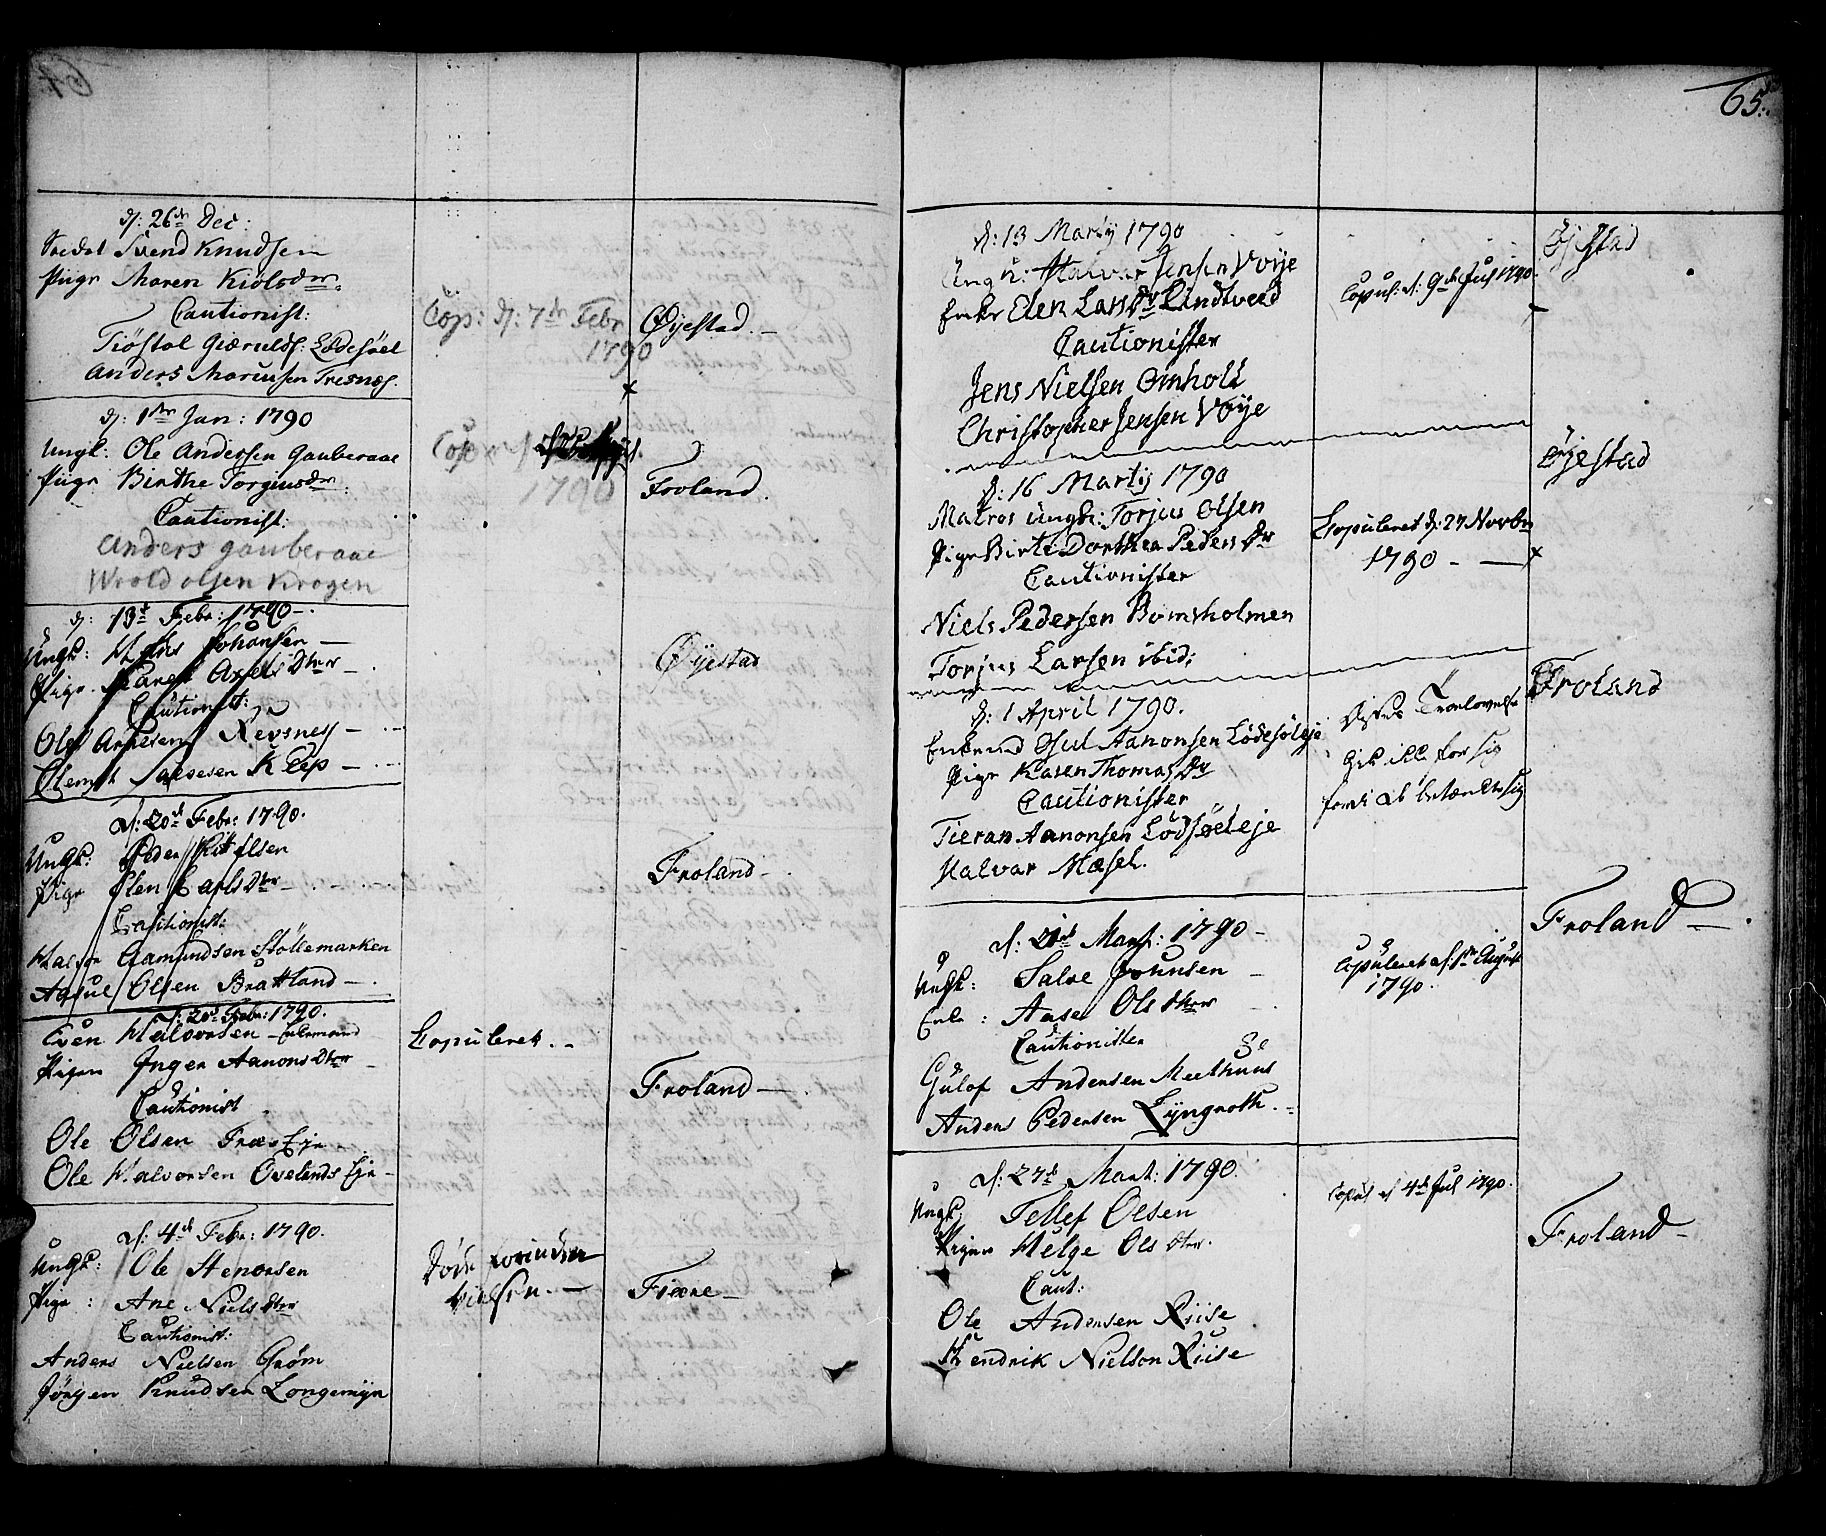 64
d: 26de Dec:
Soldat Svend Knudsen
Pige Maren Kiølsdtr.
Cautionist:
Tiøstol Gierulds: Lødesøel
Anders Mariusen Tresnes.
Cop: d: 7de Febr
1790
Øyestad.
d: 1ste Jan: 1790
Ungk: Ole Andersen Gauberaae
Pige Birthe Torgiusdtr:
Cautionist:
Anders Gauberaae
Wrold Olsen Krogen
Cop
1790
Froland.
d: 13de Febr: 1790.
Ungk: Johansen
Pige. Maren Axels Dtter
Cautionist:
Ole Revsnes
Jacobsen Klep
Øyestad
d: 20de Febr: 1790.
Ungk: Peder Kittelsen
Pige Elen Carls Dtter
Cautionist:
Halvor Aamundsen Støllemarken
Aasul Olsen Brattland
Froland
d: 20de Febr: 1790.
Even Halvorsen Enkemand
Pigen Inger Aanons Dtter
Cautionist
Ole Olsen Træe Eje
Ole Halvorsen Øvelands Eje
Copuleret.
Froland
d: 4de Febr: 1790.
Ungk: Ole Stenorsen
Pige: Ane Niels dtter
Cautionist:
Anders Nielsen Grøm
Jörgen Knudsen Longemyr
Døde forinden
Vielsen.
Fiære
65.
d: 13 Martij 1790
Ungk: Halvor Jensen Vøye
Enke Elen Lars Dr Lindtveed
Cautionister
Jens Nielsen Omholt
Christopher Jensen Vøye
Copul: d: 9de Jul 1790.
Øjestad
d: 16 Martij 1790
Matros Ungk: Torjus Olsen
Pige Birte Dorthea Peders Dr
Cautionister
Niels Pedersen Bomsholmen
Torjus Larsen ibid:
Copuleret d: 27 Novbr
1790.
Øyestad
d: 1 April 1790.
Enkemd Osul Aanonsen Lødesøleje
Pige Karen Thomas Dr
Cautionister
Tieran Aanonsen Lødesøeleje
Halvor Mæsel.
Disses Trolovelse
Gik ikke for sig
fordi de betænkte sig
Froland
d: 21de Mart: 1790
Ungk: Salve Johnsen
Enke: Aase Ols dtter
Cautionister
Gulof Andersen Meethuus
Anders Pedersen Lyngroth.
Copuleret d: 1te August
1790.
Froland
d: 27de Mart: 1790.
Ungk: Tellef Olsen
Pigen Helge Ols dtter.
Caut:
Ole Andersen Riise
Hendrik Nielson Riise
Copul d 4de Jul 1790.
Froland